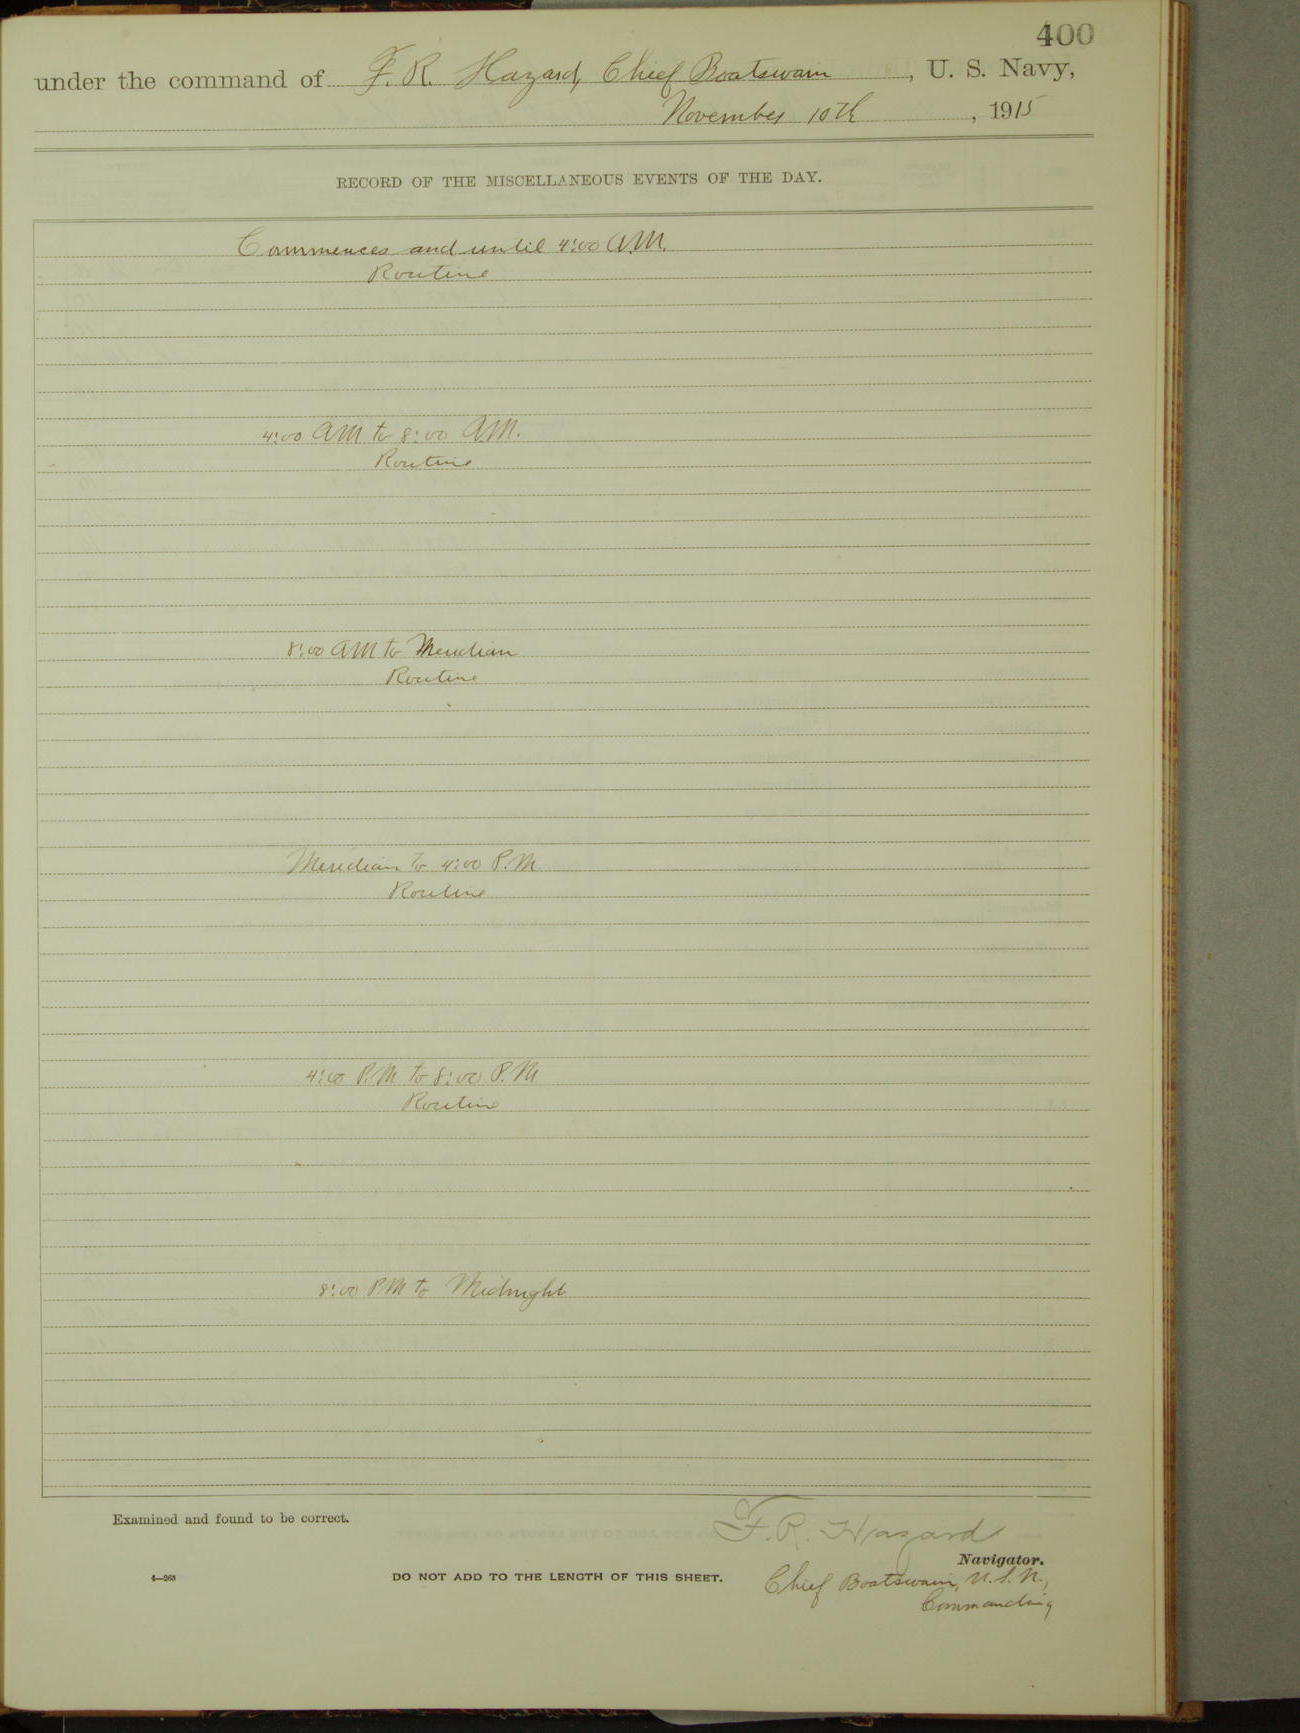 400
under the command of F. R. Hazard, Chief Boatswain, U. S. Navy,
November 10th, 1915
RECORD OF THE MISCELLANEOUS EVENTS OF THE DAY.
Commences and until 4:00 A.M.
Routine
4:00 AM to 8:00 AM.
Routine
8:00 AM to Meridian
Routine
Meridian to 4:00 P.M
Routine
4:00 P.M to 8:00 P.M
Routine
8:00 PM to Midnight
Examined and found to be correct.
F. R. Hazard
Navigator.
4—268
DO NOT ADD TO THE LENGTH OF THIS SHEET.
Chief Boatswain, U.S.N.,
Commanding